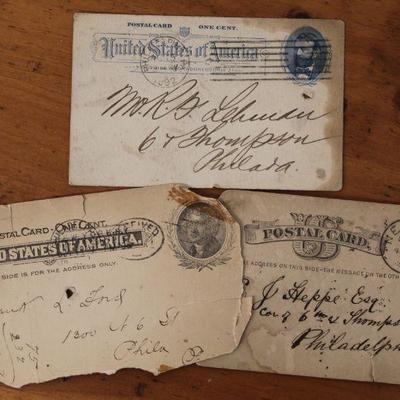 POSTAL CARD ONE CENT.
United States of America
PHILADELPHIA
Mr R. F. Lehman
6 & Thompson
Philada.
POSTAL CARD - ONE CENT.
D STATES OF AMERICA.
RECEIVED
SIDE IS FOR THE ADDRESS ONLY.
L Ford
1300 N 6 St
Phila P
US
POSTAL CARD.
E ADDRESS ON THIS SIDE - THE MESSAGE ON THE OTH
J Heppe Esq
Cor of 6th & Thompso
Philadelph